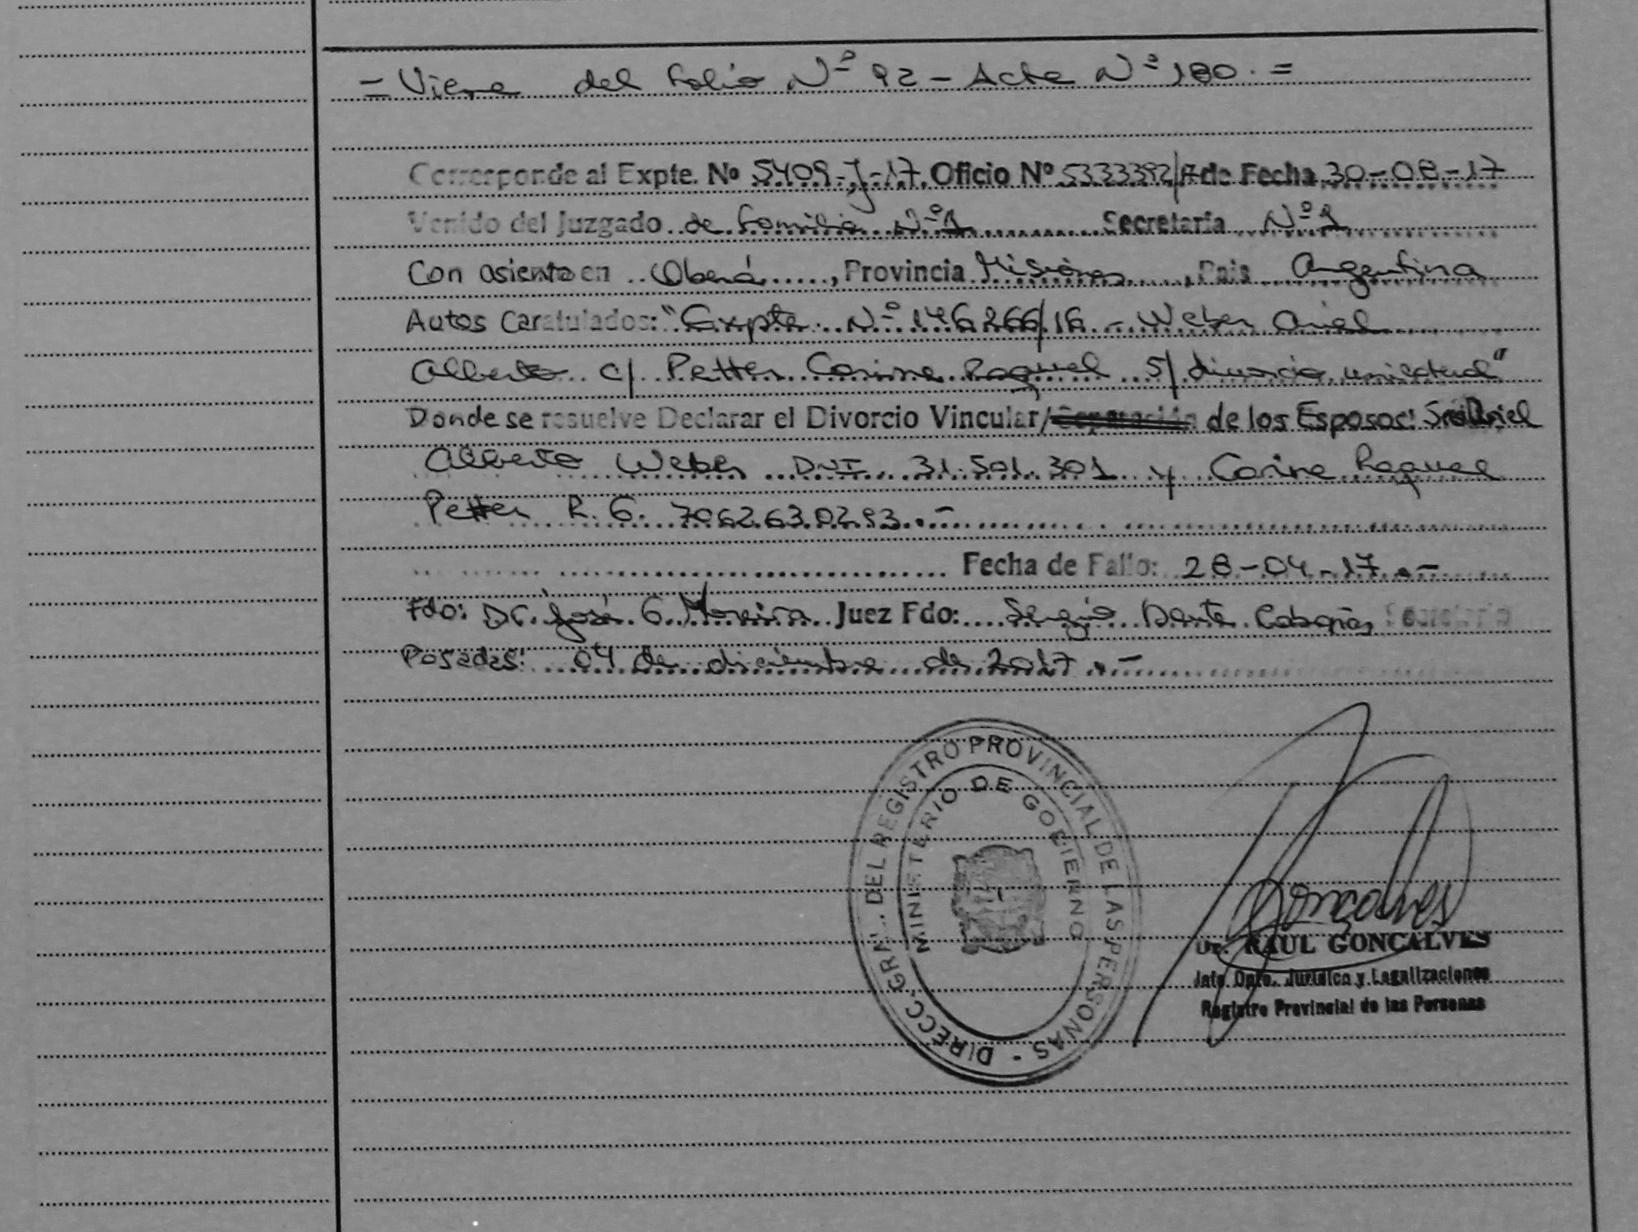 = Viene del folio Nº 92 - Acta Nº 180. =
Corresponde al Expte. Nº 5409-J-17. Oficio Nº 5333392/A de Fecha 30-08-17
Venido del Juzgado de Familia Nº 1 Secretaría Nº 1
Con asiento en Oberá, Provincia Misiones, País Argentina
Autos Caratulados: "Expte Nº 146266/16 - Weber Ariel
Alberto c/ Petter Corina Raquel s/ divorcio unilateral"
Donde se resuelve Declarar el Divorcio Vincular/Separación de los Esposos: Ariel
Alberto Weber DNI 31.501.301 y Corina Raquel
Petter R.G. 7062630293.-
Fecha de Fallo: 28-04-17.-
Fdo: Dr. José G. Moreira Juez Fdo: Sergio Dante Cabañas Secretaria
Posadas: 04 de diciembre de 2017.-
DIRECC. GRAL. DEL REGISTRO PROVINCIAL DE LAS PERSONAS -
MINISTERIO DE GOBIERNO
Gonçalves
Dr. RAUL GONCALVES
Jefe Dpto. Jurídico y Legalizaciones
Registro Provincial de las Personas